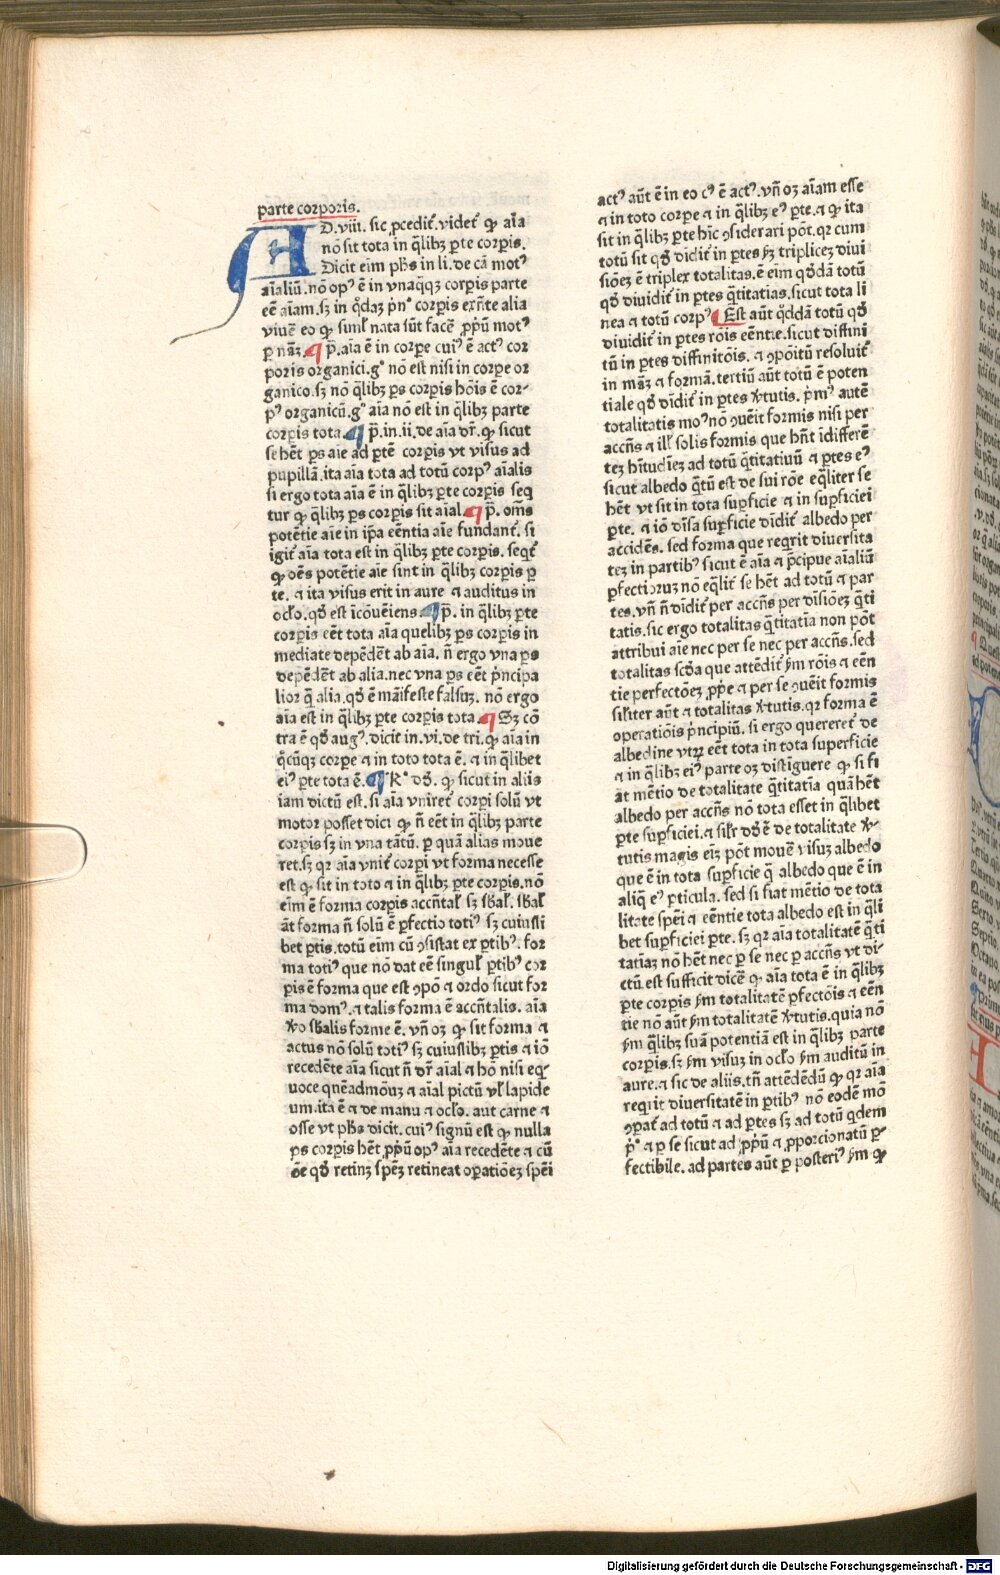 parte corporis.
AD.viii. sic ꝓcedit᷑.videt᷑ ꝙ aīa
nō sit tota in q̄libꝫ ꝑte corꝑis.
Dicit eīm pħs in li.de cā motꝰ
aīaliū.nō opꝰ ē in vnaq̄qꝫ corꝑis parte
eē aīam.sꝫ in q̄daꝫ p̄nꝰ corꝑis exn̄te alia
viuē eo ꝙ simĺ nata sūt facē ꝓpū motꝰ
ꝑ nāꝫ.¶ p̄.aīa ē in corꝑe cuiꝰ ē actꝰ cor
poris organici.gͦ nō est nisi in corꝑe or
ganico.sꝫ nō q̄libꝫ ps corꝑis hōis ē cor-
pꝰ organicū.gͦ aīa nō est in q̄libꝫ parte
corꝑis tota.¶ p̄.in.ii.de aīa dr̄.ꝙ sicut
se hēt ps aīe ad ꝑtē corꝑis vt visus ad
pupillā.ita aīa tota ad totū corpꝰ aīalis
si ergo tota aīa ē in q̄libꝫ ꝑte corꝑis seq̄
tur ꝙ q̄libꝫ ps corꝑis sit aīal.¶ p̄. oms̄
potētie aīe in ip̄a eēntia aīe fundant᷑. si
igit᷑ aīa tota est in q̄libꝫ ꝑte corꝑis. seqt᷑
ꝙ oēs potētie aīe sint in q̄libꝫ corꝑis ꝑ
te. ⁊ ita visus erit in aure ⁊ auditus in
ocĺo.qđ est īcōueīens.¶ p̄. in q̄libꝫ ꝑte
corꝑis eēt tota aīa quelibꝫ ps corꝑis in
mediate depēdēt ab aīa. n̄ ergo vna ps
depēdēt ab alia.nec vna ps eēt p̄ncipa
lior q̄ alia.qđ ē māifeste falsuꝫ. nō ergo
aīa est in q̄libꝫ ꝑte corꝑis tota.¶ Sꝫ cō
tra ē qđ augꝰ.dicit in.vi.de tri.ꝙ aīa in
q̄cūqꝫ corꝑe ⁊ in toto tota ē. ⁊ in q̄libet
eiꝰ ꝑte tota ē.¶ Rͦ đđ. ꝙ sicut in aliis
iam dictū est.si aīa vniret᷑ corꝑi solū vt
motor posset dici ꝙ n̄ eēt in q̄libꝫ parte
corꝑis sꝫ in vna tātū. ꝑ quā alias moue
ret.sꝫ qꝛ aīa vnit᷑ corꝑi vt forma necesse
est ꝙ sit in toto ⁊ in q̄libꝫ ꝑte corꝑis.nō
eīm ē forma corꝑis accn̄taĺ sꝫ sb̄aĺ. sb̄aĺ
āt forma n̄ solū ē ꝑfectio totiꝰ sꝫ cuiusli
bet ꝑtis.totū eīm cū ꝯsistat ex ꝑtibꝰ. for
ma totiꝰ que nō dat eē singuĺ ꝑtibꝰ cor
ꝑis ē forma que est ꝯpō ⁊ ordo sicut for
ma domꝰ.⁊ talis forma ē accn̄talis. aīa
ꝟo sb̄alis forme ē. vn̄ oꝫ ꝙ sit forma ⁊
actus nō solū totiꝰ sꝫ cuiuslibꝫ ꝑtis ⁊ iō
recedēte aīa sicut n̄ dr̄ aīal ⁊ hō nisi eq̄
uoce quēadmōuꝫ ⁊ aīal pictū vĺ lapide
um.ita ē ⁊ de manu ⁊ ocĺo. aut carne ⁊
osse vt pħs dicit. cuiꝰ signū est ꝙ nulla
ps corꝑis hēt ꝓpū opꝰ aīa recedēte ⁊ cū
ōe qđ retinꝫ spēꝫ retineat oꝑatiōeꝫ spēi
actꝰ aūt ē in eo cꝰ ē actꝰ.vn̄ oꝫ aīam esse
⁊ in toto corꝑe ⁊ in q̄libꝫ eꝰ ꝑte.⁊ ꝙ ita
sit in q̄libꝫ ꝑte hīc ꝯsiderari pōt.qꝛ cum
totū sit qđ didit᷑ in ꝑtes ẜꝫ tripliceꝫ diui
siōeꝫ ē triplex totalitas.ē eīm qđdā totū
qđ diuidit᷑ in ꝑtes q̄titatias.sicut tota li
nea ⁊ totū corpꝰ¶ Est aūt qđdā totū qđ
diuidit᷑ in ꝑtes rōis eēntie.sicut diffini
tū in ꝑtes diffinitōis. ⁊ ꝯpōitū resoluit᷑
in māꝫ ⁊ formā.tertiū aūt totū ē poten
tiale qđ didit᷑ in ꝑtes ꝟtutis. p̄mꝰ autē
totalitatis moꝰ nō ꝯuēit formis nisi per
accn̄s ⁊ ilĺ solis formis que hn̄t īdifferē
teꝫ hītudīeꝫ ad totū q̄titatiuū ⁊ ꝑtes eꝰ
sicut albedo q̄tū est de sui rōe eq̄liter se
hēt vt sit in tota suꝑficie ⁊ in suꝑficiei
ꝑte. ⁊ iō diīsa suꝑficie didit᷑ albedo per
accidēs. sed forma que reqrit diuersita
teꝫ in partibꝰ sicut ē aīa ⁊ p̄cipue aīaliū
ꝑfectioꝛuꝫ nō eq̄lit᷑ se hēt ad totū ⁊ par
tes.vn̄ n̄ didit᷑ per accn̄s per diīsiōeꝫ q̄ti
tatis.sic ergo totalitas q̄titatīa non pōt
attribui aīe nec per se nec per accn̄s.sed
totalitas scđa que attēdit᷑ ẜm rōis ⁊ eēn
tie perfectōeꝫ ꝓpe ⁊ per se ꝯuēit formis
siĺiter aūt ⁊ totalitas ꝟtutis.qꝛ forma ē
operatiōis p̄ncipiū. si ergo quereret᷑ de
albedine vtꝝ eēt tota in tota superficie
⁊ in q̄libꝫ eiꝰ parte oꝫ distiguere ꝙ si fi
āt mētio de totalitate q̄titatīa quā hēt
albedo per accn̄s nō tota esset in q̄libet
ꝑte suꝑficiei.⁊ siĺr đđ ē de totalitate ꝟ-
tutis magis eīꝫ pōt mouē visuꝫ albedo
que ē in tota suꝑficie q̄ albedo que ē in
aliq̄ eꝰ ꝑticula. sed si fiat mētio de tota
litate spēi ⁊ eēntie tota albedo est in q̄li
bet suꝑficiei ꝑte. sꝫ qꝛ aīa totalitatē q̄ti
tatīaꝫ nō hēt nec ꝑ se nec ꝑ accn̄s vt di-
ctū.est sufficit dicē ꝙ aīa tota ē in q̄libꝫ
ꝑte corꝑis ẜm totalitatē ꝑfectōis ⁊ eēn
tie nō aūt ẜm totalitatē ꝟtutis.quia nō
ẜm q̄libꝫ suā potentiā est in q̄libꝫ parte
corꝑis.sꝫ ẜm visuꝫ in ocĺo ẜm auditū in
aure.⁊ sic de aliis.tn̄ attēdēdū ꝙ qꝛ aīa
reqrit diuersitatē in ꝑtibꝰ nō eodē mō
ꝯꝑat᷑ ad totū ⁊ ad ꝑtes sꝫ ad totū qdem
p̄ͦ ⁊ ꝑ se sicut ad ꝓpū ⁊ ꝓporcionatū ꝑ-
fectibile. ad partes aūt ꝑ posteriꝰ ẜm ꝙ
Digitalisierung gefördert durch die Deutsche Forschungsgemeinschaft - DFG